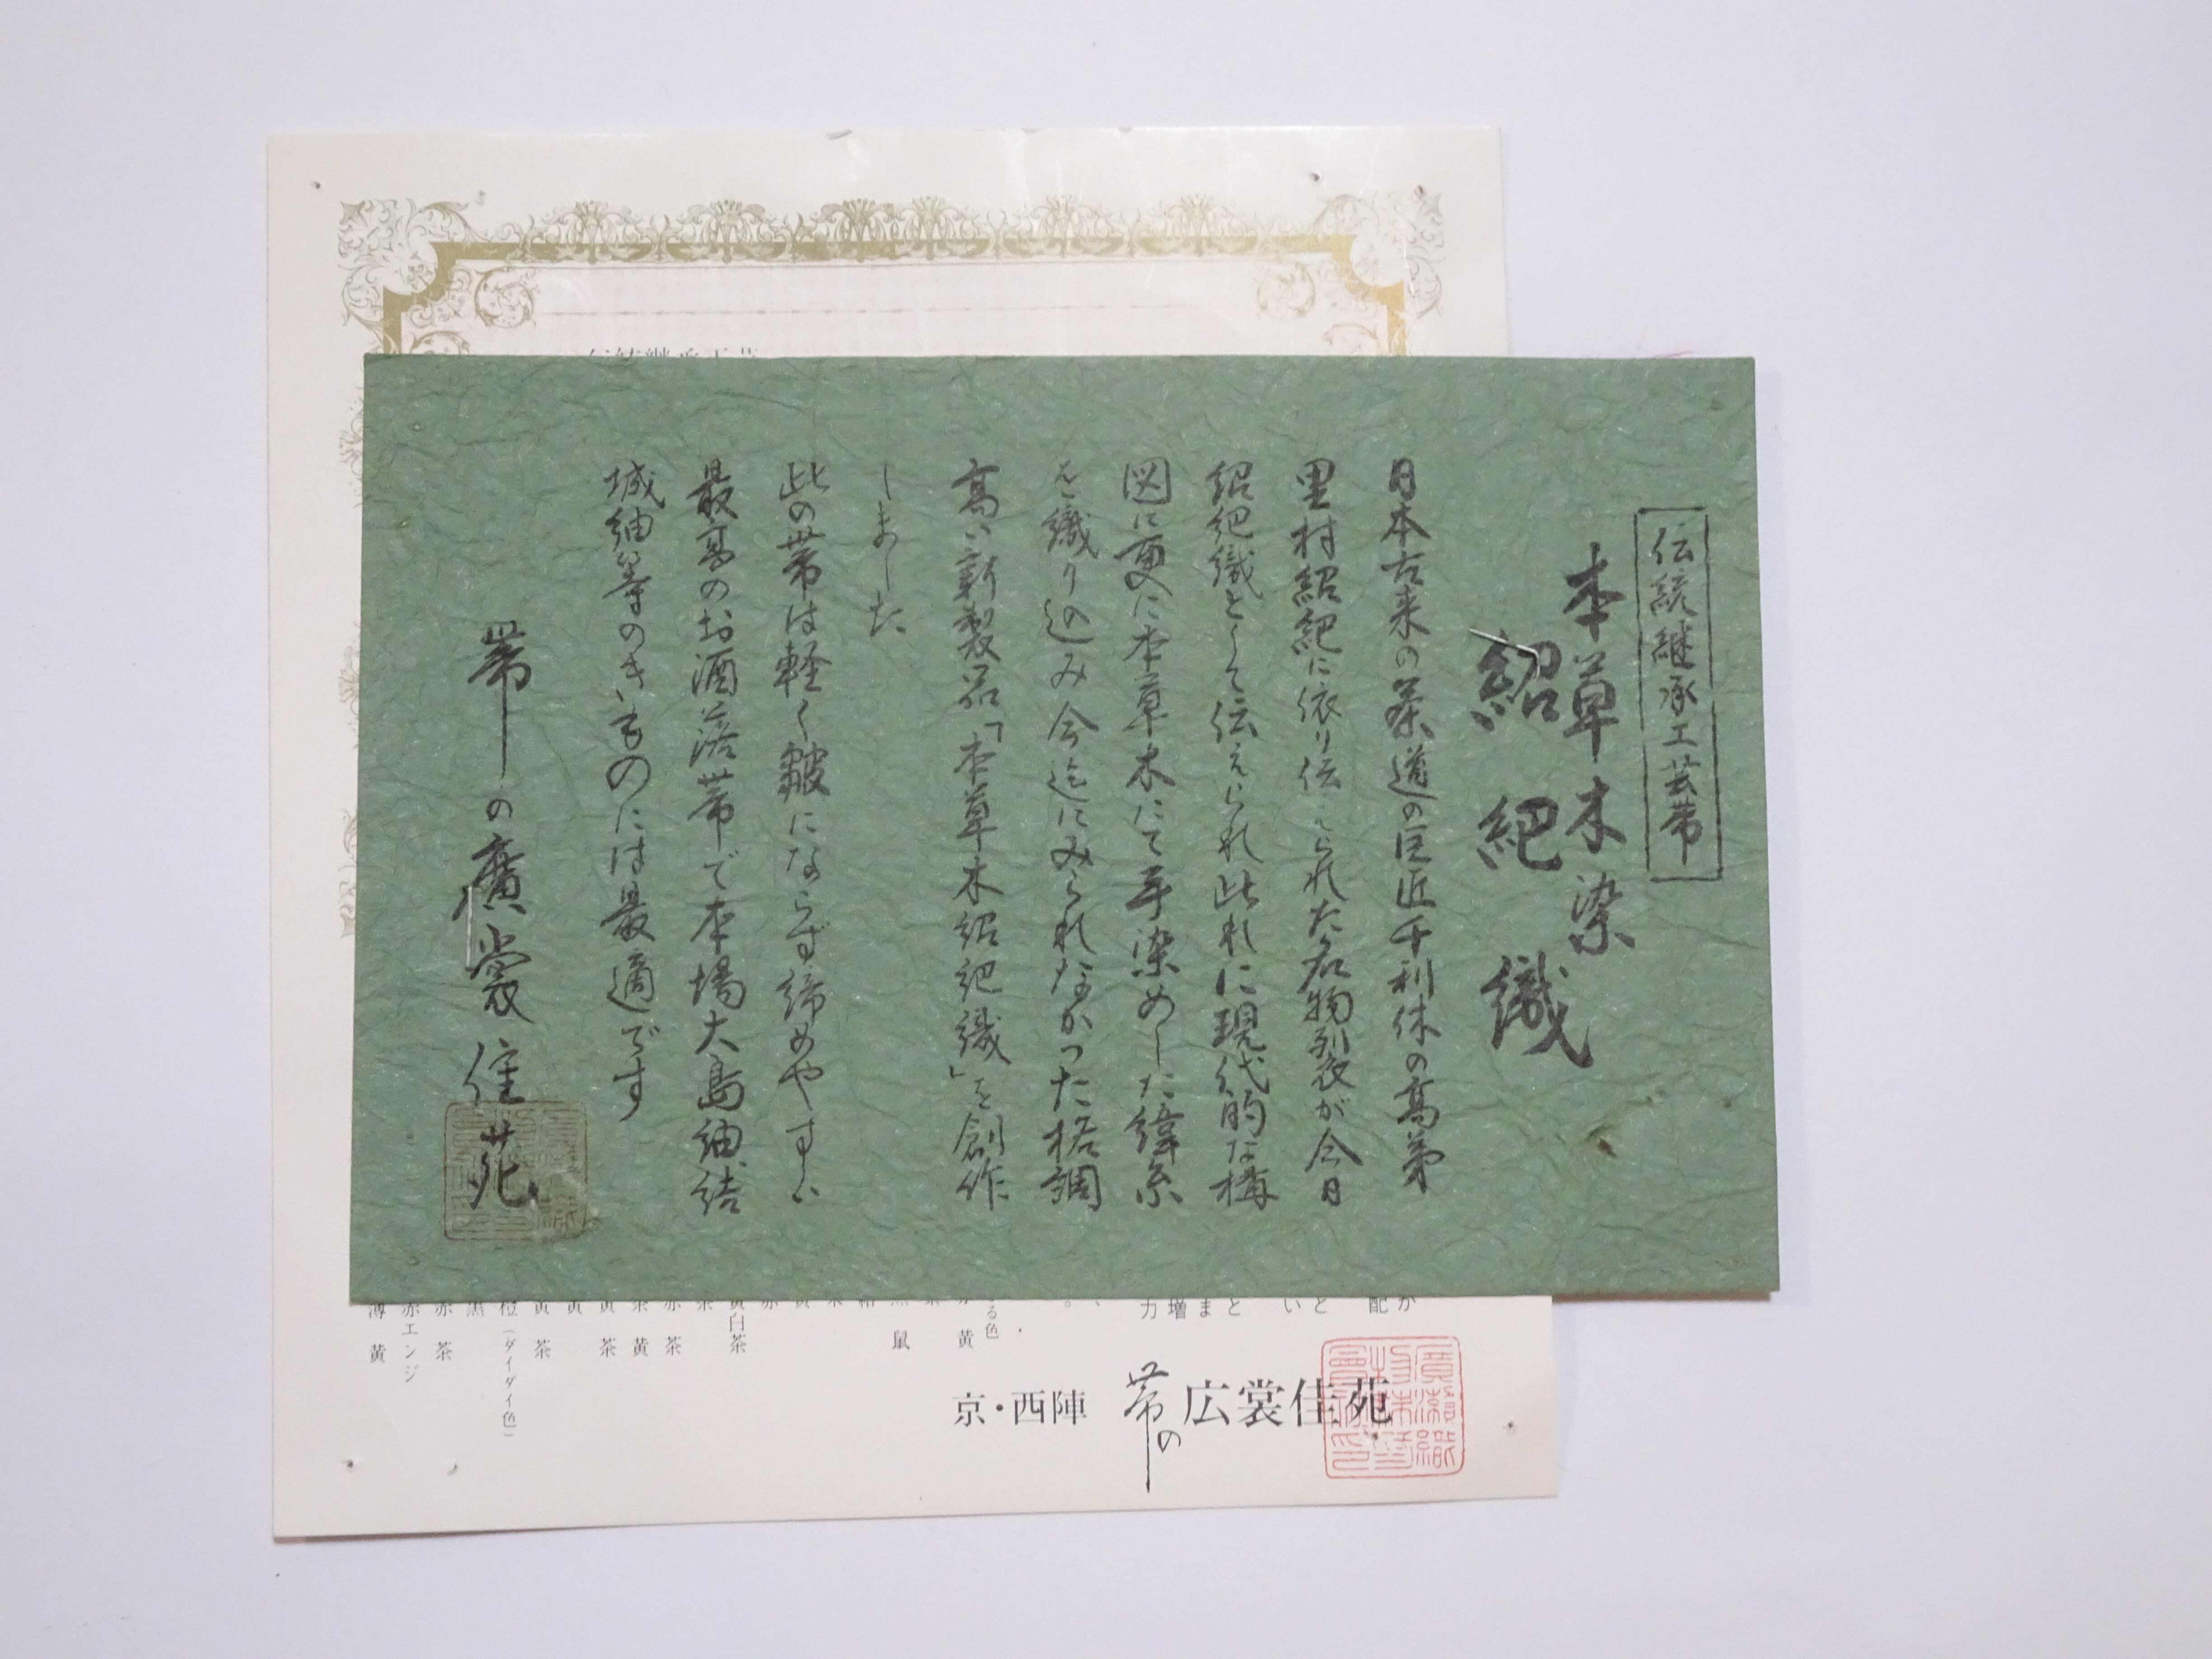 伝統継承工芸帯
本草木染
紹紦織
日本古来の茶道の巨匠千利休の高弟
里村紹紦に依り伝えられた名物裂が今日
紹紦織として伝えられ此れに現代的な構
図に更に本草木にて手染めした緯糸
を織り込み今迄にみられなかった格調
高い新製品「本草木紹紦織」を創作
しました
此の帯は軽く皺にならず締めやすい
最高のお洒落帯で本場大島紬結
城紬等のきものには最適です
帯の廣裳佳苑
伝統継承工芸
か
配
と
い
と
ま
増
力
る色
黄
鼠
黄白茶
赤茶
茶黄
黄茶
黄
黄茶
橙(ダイダイ色)
黒
赤茶
赤エンジ
薄黄
京・西陣 帯の広裳佳苑